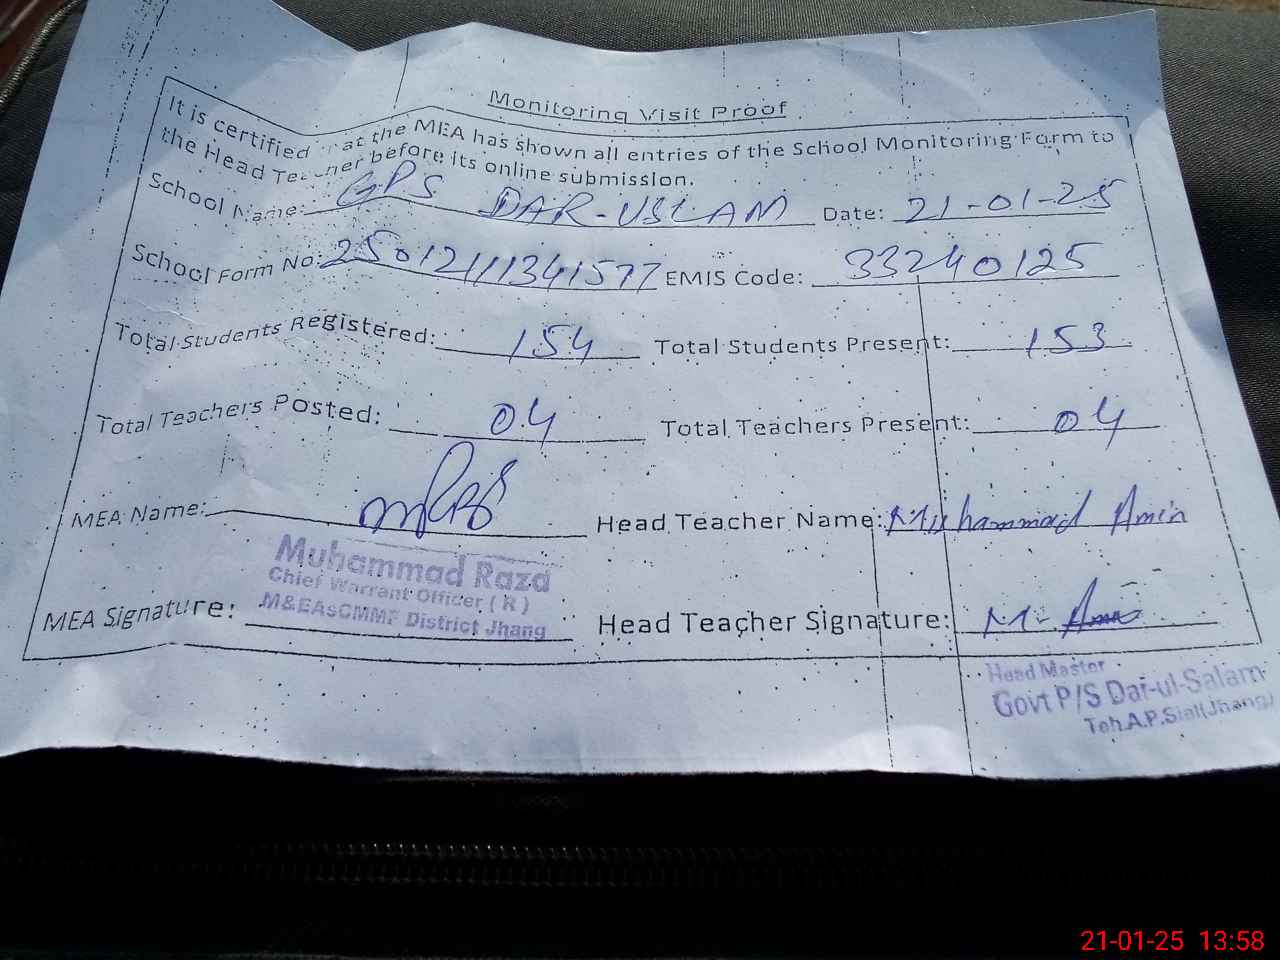 Monitoring Visit Proof
It is certified that the MEA has shown all entries of the School Monitoring Form to
the Head Teacher before its online submission.
School Name: GPS DAR-USLAM Date: 21-01-25
School Form No: 25012111341577 EMIS Code: 33240125
Total Students Registered: 154 Total Students Present: 153
Total Teachers Posted: 04 Total Teachers Present: 04
MEA Name: Head Teacher Name: Muhammad Amin
Muhammad Raza
Chief Warrant Officer ( R )
M&EAsCMMF District Jhang
MEA Signature: Head Teacher Signature: M. Amin
Head Master
Govt P/S Dar-ul-Salam
Teh.A.P.Sial(Jhang)
21-01-25 13:58